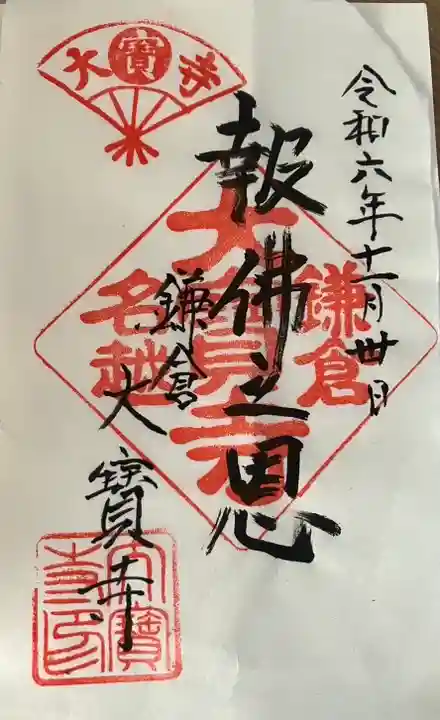 令和六年十一月卅日
報佛之恩
鎌倉
大寶寺
大寶寺
鎌倉
大寶寺
名越